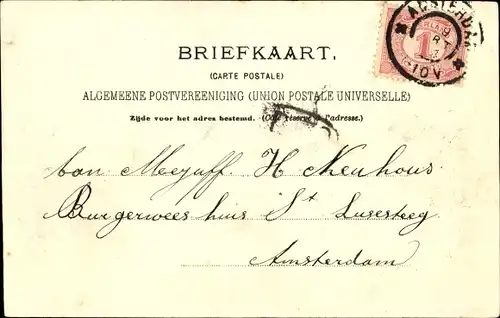 AMSTERDAM
1
10V
BRIEFKAART.
(CARTE POSTALE)
ALGEMEENE POSTVEREENIGING (UNION POSTALE UNIVERSELLE)
Zijde voor het adres bestemd. (Côté réservé à l'adresse.)
Aan Mejuff. H Neuhous
Burgerweeshuis St Lusesteeg
Amsterdam